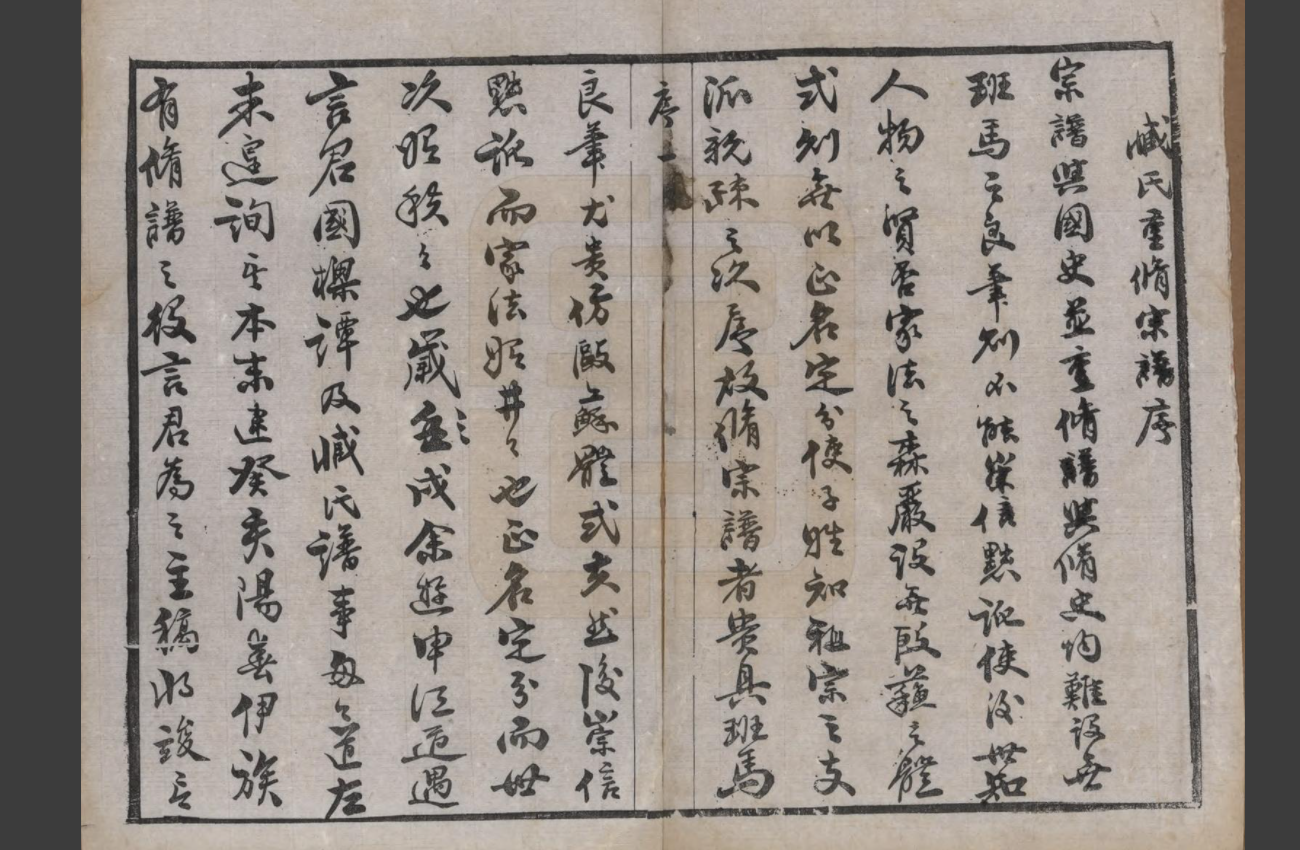 臧氏重脩宗譜序
宗譜與國史並重脩譜與脩史均難設無
班馬之良筆則不能崇信黜訛使後世知
人物之賢否家法之森嚴設無歐蘇之體
式則無以正名定分使子姓知祖宗之支
派親疎之次序故脩宗譜者貴具班馬
序 一
良筆尤貴仿歐蘇體式夫然後崇信
黜訛而家法昭井々也正名定分而世
次昭秩々也歲
成余遊申江道遇
言君國樑譚及臧氏譜事匆々道左
未遑詢其本末逮癸亥陽春伊族
有脩譜之役言君為之主稿將竣之